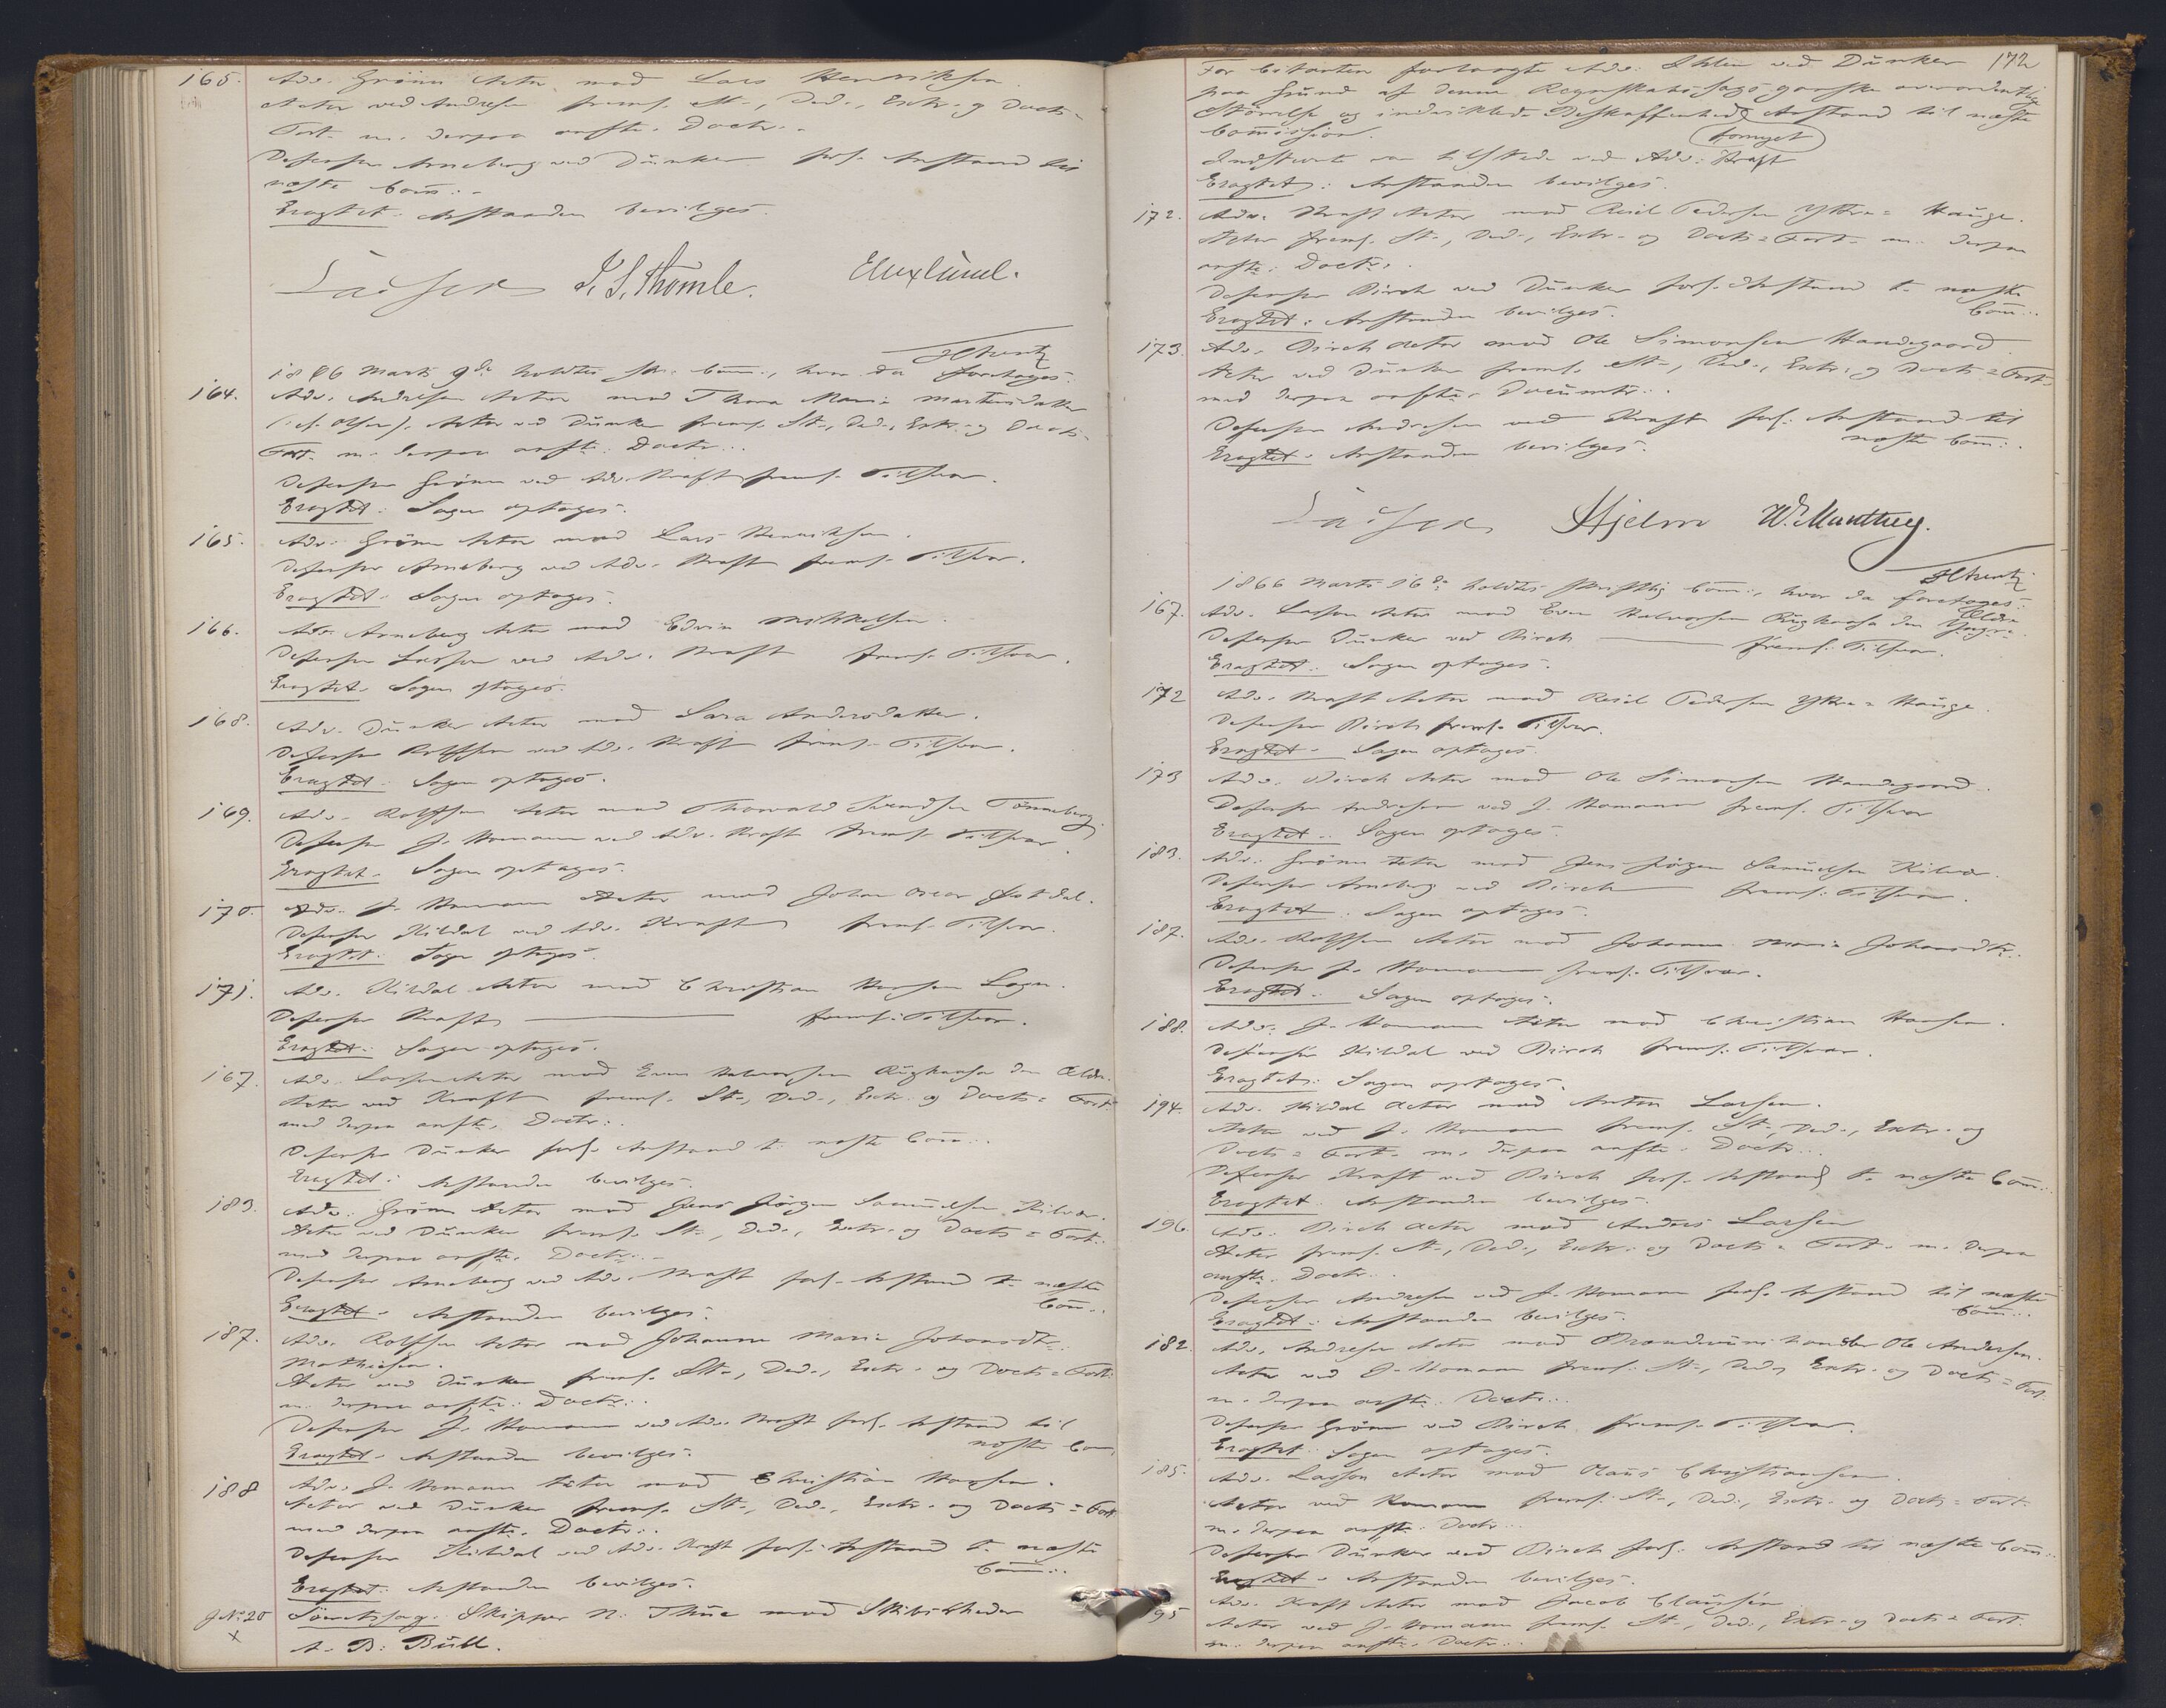 165. Adv. Grönn Actor mod Lars Henriksen
Actor ved Andresen freml. St., Ded., Extr. og Docts=
Fort. m. derpaa anfte. Doctr..
Defensor Arneberg ved Dunker forl. Anstand til
næste Com:.
Eragtet: Anstanden bevilges.
Lasson J. S. Thomle.
1866 Marts 9de holdtes skr. Com:, hvor da foretoges:
164. Adv. Andresen Actor mod Thora Maria Martinsdatter
Actor ved Dunker freml. St., Ded., Extr. og Docts=
Fort. m. derpaa anfte. Doctr..
Defensor Grönn ved Adv. Kraft freml. Tilsvar.
Eragtet: Sagen optages.
165. Adv. Grönn Actor mod Lars Henriksen.
Defensor Arneberg ved Adv. Kraft freml. Tilsvar.
Eragtet: Sagen optages.
166. Adv. Arneberg Actor mod Edvin Mikkelsen.
Defensor Lasson ved Adv. Kraft freml. Tilsvar.
Eragtet: Sagen optages.
168. Adv. Dunker Actor mod Sara Andersdatter.
Defensor Rolffsen ved Adv. Kraft freml. Tilsvar.
Eragtet: Sagen optages.
169. Adv. Rolffsen Actor mod Thorvald Svendsen Tönneberg
Defensor J. Homann ved Adv. Kraft freml. Tilsvar.
Eragtet: Sagen optages.
170. Adv. J. Homann Actor mod Johan Oscar
Defensor Kildal ved Adv. Kraft freml. Tilsvar.
Eragtet: Sagen optages.
171. Adv. Kildal Actor mod Christian Hansen
Defensor Kraft freml. Tilsvar.
Eragtet: Sagen optages.
167. Adv. Lasson Actor mod Even Halvorsen Rugkaasa den Ældre.
Actor ved Kraft freml. St., Ded., Extr. og Docts= Fort.
med derpaa anfte. Doctr..
Defensor Dunker forl. Anstand t. næste Com:.
Eragtet: Anstanden bevilges.
183. Adv. Grönn Actor mod Jens Jörgen Samuelsen Kilvær.
Actor ved Dunker freml. St., Ded., Extr. og Docts= Fort.
med derpaa anfte. Doctr..
Defensor Arneberg ved Adv. Kraft forl. Anstand t. næste
Com:.
Eragtet: Anstanden bevilges.
187. Adv. Rolffsen Actor mod Johanne Maria Johansdtr.
Mathiesen.
Actor ved Dunker freml. St., Ded., Extr. og Docts= Fort.
m. derpaa anfte. Doctr..
Defensor J. Homann ved Adv. Kraft forl. Anstand til
næste Com.
Eragtet: Anstanden bevilges.
188 Adv. J. Homann Actor mod Christian Hansen.
Actor ved Dunker freml. St., Ded., Extr. og Docts= Fort
med derpaa anfte. Doctr..
Defensor Kildal ved Adv. Kraft forl. Anstand t. næste
Com:.
Eragtet: Anstanden bevilges.
J No 20 Söretssag: Skipper N. Thue mod Skibsrheder
x A. B. Bull.
172
For Citanten forlangte Adv. ved Dunker
paa Grund af denne Regnskabs-Sags ganske overordentlige
Störrelse og indviklede Beskaffenhed Anstand til næste
Commission. fornyet
Indstevnte var tilstede ved Adv: Kraft
Eragtet: Anstanden bevilges.
172. Adv. Kraft Actor mod Pedersen Yttre= Hauge.
Actor freml. St., Ded., Extr. og Docts= Fort. m. derpaa
anfte. Doctr..
Defensor Birch ved Dunker forl. Anstand t. næste
Com:.
Eragtet: Anstanden bevilges.
173. Adv. Birch Actor mod Ole Simonsen Handegaard
Actor ved Dunker freml. St., Ded., Extr. og Docts= Fort.
med derpaa anfte. Documtr..
Defensor Andresen ved Kraft forl. Anstand til
næste Com:.
Eragtet: Anstanden bevilges.
Lasson Hjelm W. Manthey.
1866 Marts 16de holdtes skriftlig Com:, hvor da foretoges:
167. Adv. Lasson Actor mod Even Halvorsen Rugkaasa den Yngre. Ældre
Defensor Dunker ved Birch freml. Tilsvar.
Eragtet: Sagen optages.
172 Adv. Kraft Actor mod Pedersen Yttre= Hauge.
Defensor Birch freml. Tilsvar.
Eragtet: Sagen optages.
173 Adv. Birch Actor mod Ole Simonsen Handegaard.
Defensor Andresen ved J. Homann freml. Tilsvar
Eragtet: Sagen optages.
183. Adv. Grönn Actor mod Jens Jörgen Samuelsen Kilvær.
Defensor Arneberg ved Birch freml. Tilsvar.
Eragtet: Sagen optages.
187. Adv. Rolffsen Actor mod Johanne Maria Johansdtr.
Defensor J. Homann freml. Tilsvar.
Eragtet: Sagen optages.
188. Adv. J. Homann Actor mod Christian Hansen.
Defensor Kildal ved Birch freml. Tilsvar.
Eragtet: Sagen optages.
194. Adv. Kildal Actor mod Anton Larsen.
Actor ved J. Homann freml. St., Ded., Extr. og
Docts= Fort. m. derpaa anfte. Doctr..
Defensor Kraft ved Birch forl. Anstand t. næste Com:.
Eragtet: Anstanden bevilges.
196. Adv. Birch Actor mod Anders Larsen
Actor freml. St., Ded., Extr. og Docts= Fort. m. derpaa
anfte. Doctr..
Defensor Andresen ved J. Homann forl. Anstand til næste
Com:.
Eragtet: Anstanden bevilges.
182. Adv. Andresen Actor mod Brændeviinshandler Ole Andersen.
Actor ved J. Homann freml. St., Ded., Extr. og Docts= Fort.
m. derpaa anfte. Doctr..
Defensor Grönn ved Birch freml. Tilsvar.
Eragtet: Sagen optages.
185. Adv. Lasson Actor mod Olaus Christiansen.
Actor ved Homann freml. St., Ded., Extr. og Docts= Fort.
m. derpaa anfte. Doctr..
Defensor Dunker ved Birch forl. Anstand til næste Com:.
Eragtet: Anstanden bevilges.
95 Adv. Kraft Actor mod Jacob Claussen
Actor ved J. Homann freml. St., Ded., Extr. og Docts= Fort.
m. derpaa anfte. Doctr..